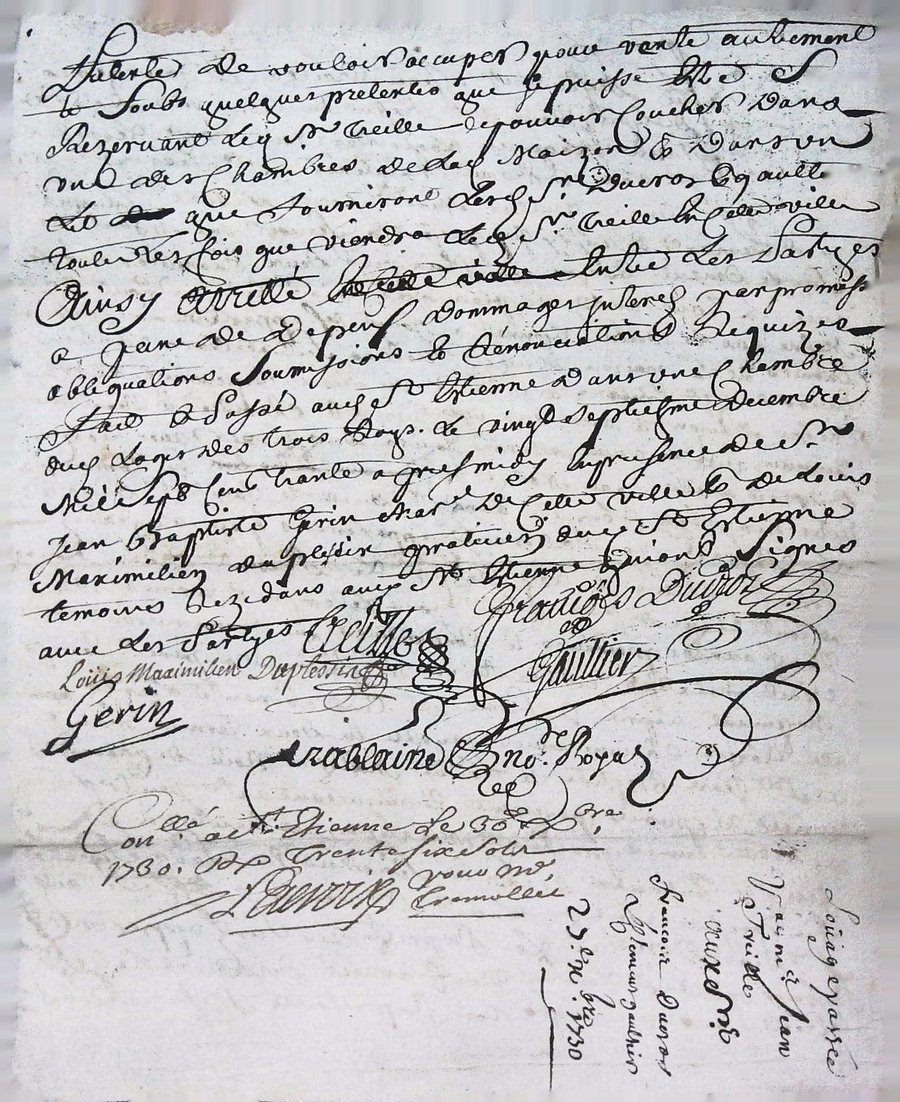 de vouloir occuper pour vante autrement
Soubs quelques pretentio que se puisse Etre S
Rezervant Led Sr. treille de pouvoir Coucher dans
une des Chambres de lad Maizon & dans un
Lit que fourniront Lesd Srs. Ducros & gaultier
toutes Les fois que viendra Led Sr. treille En Cette ville
Ainsy arretté Entre Les Partyes
a peine de depens dommages Interets par promesse
obligations Soumissions & Renonciations Requizes
Fait & Passé aud St Etienne dans une Chambre
dud Logis des trois Roys. Le vingt Septiesme decembre
Mil Sept Cent trante apres midy En presence de Sr.
Jean Baptiste Gerin Mart de Cette ville & de Louis
Maximilien duplessis praticien dud St. Etienne
temoins rezidans aud St. Etienne Signes
avec Les Partyes
François Ducros
Louis Maximilien Duplessis
Gaultier
Gerin
no.re Royal
Con.llé a St. Etienne Le 30e x.bre
1730. Rx Trente Six Sols
pour me
L
Louage passée
Par mre Jean
Treille
aux Srs
François ducros
& gaultier
27.e x.bre 1730